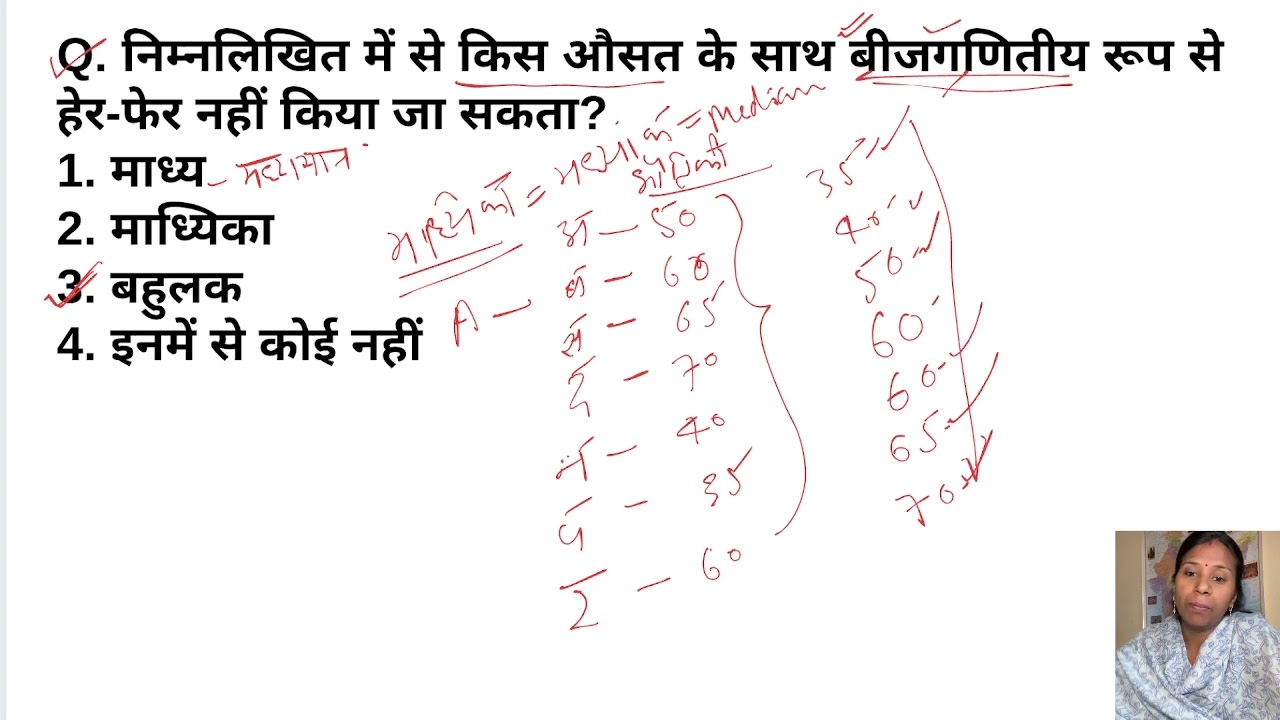 Q. निम्नलिखित में से किस औसत के साथ बीजगणितीय रूप से
हेर-फेर नहीं किया जा सकता?
1. माध्य - मध्यमान
2. माध्यिका
3. बहुलक
4. इनमें से कोई नहीं
= median
भौतिकी
A -
अ - 50
ब - 60
स - 65
द - 70
न - 40
प - 35
र - 60
35
40
50
60
60
65
70